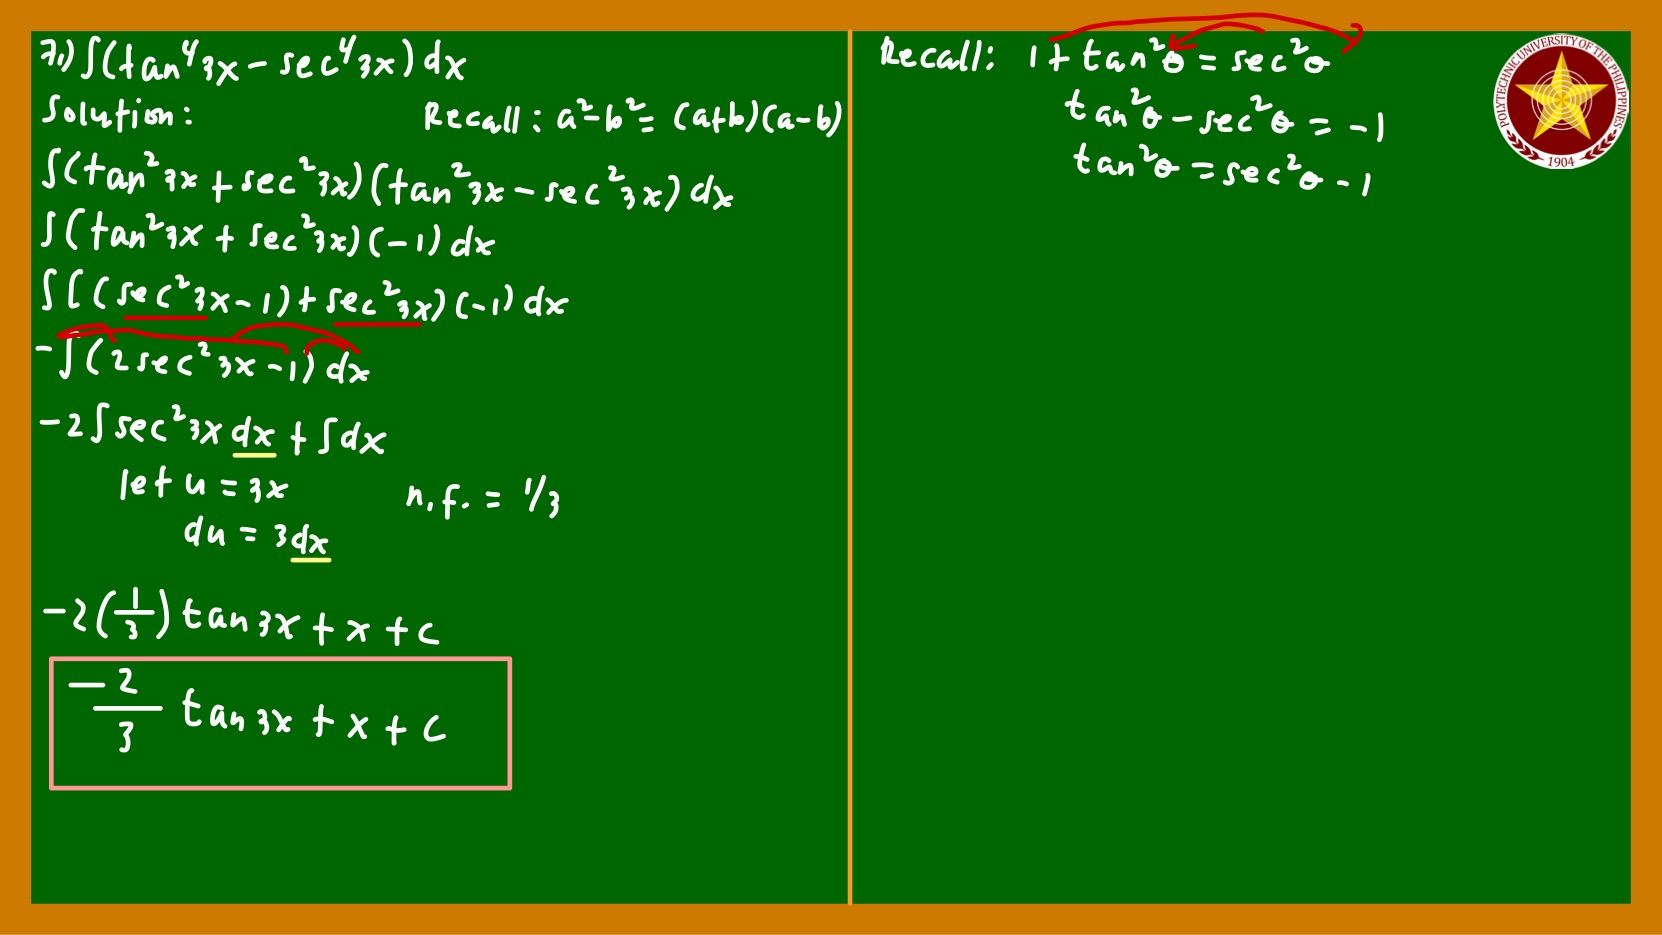 7.) ∫(tan⁴3x − sec⁴3x) dx
Solution: Recall: a²−b² = (a+b)(a−b)
∫(tan²3x + sec²3x)(tan²3x − sec²3x) dx
∫(tan²3x + sec²3x)(−1) dx
∫[(sec²3x−1)+sec²3x)(−1) dx
−∫(2sec²3x−1) dx
−2∫sec²3x dx + ∫dx
let u = 3x n.f. = 1/3
du = 3dx
−2(1/3) tan3x + x + c
−2/3 tan3x + x + c
Recall: 1 + tan²θ = sec²θ
tan²θ − sec²θ = −1
tan²θ = sec²θ − 1
POLYTECHNIC UNIVERSITY OF THE PHILIPPINES
1904